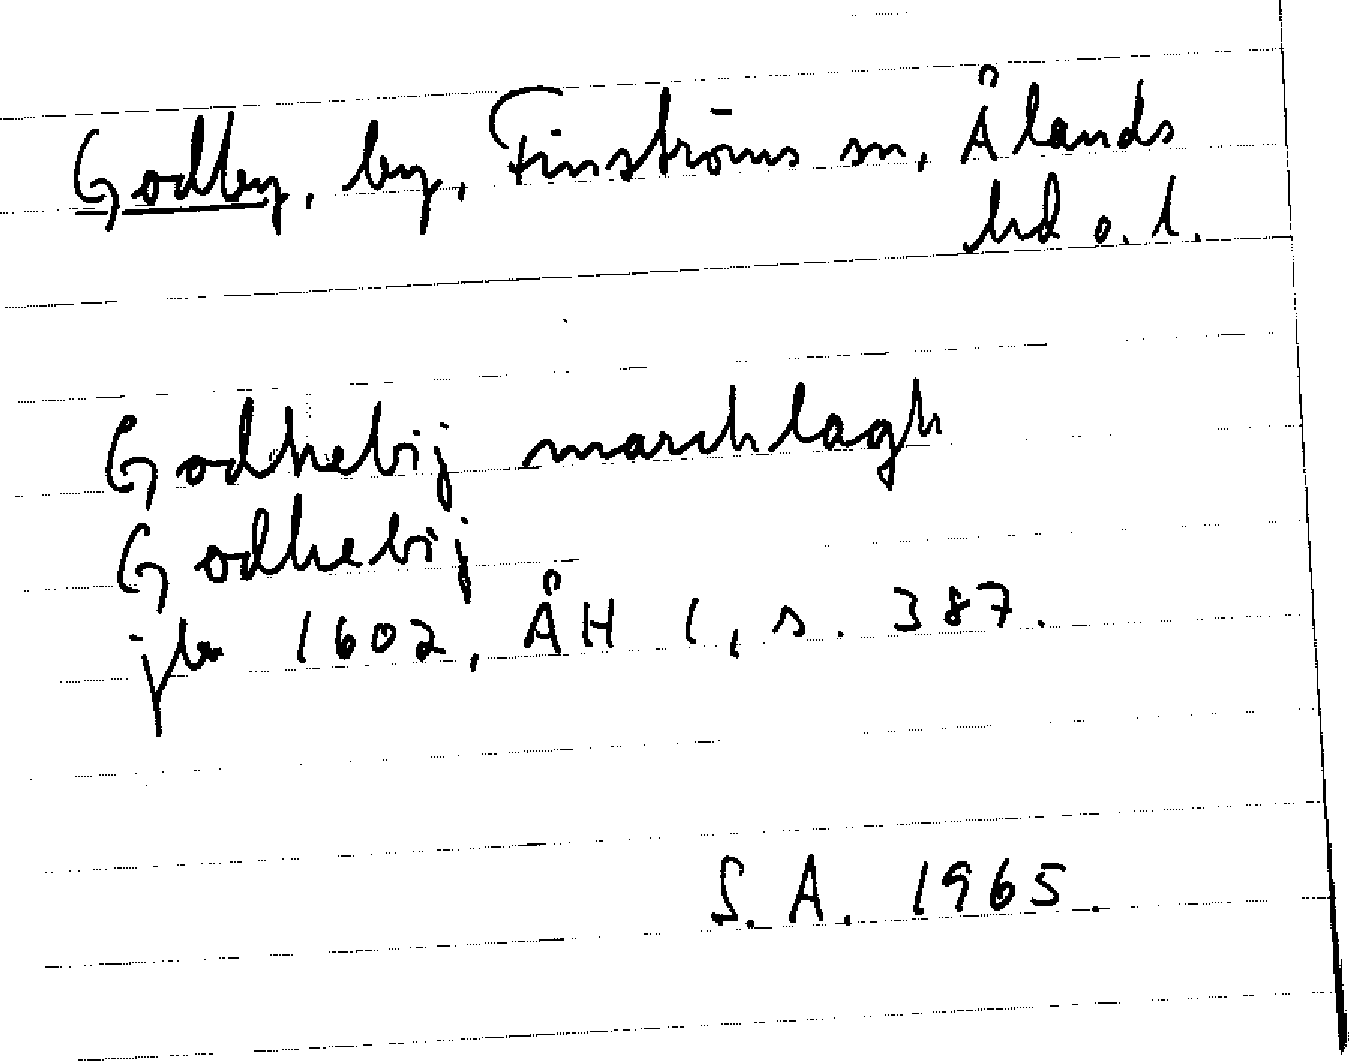 Godby, by, Finströms sn, Ålands
hd o. l.
Godhebij marchlagh
Godhebij
jb 1602, ÅH 1, s. 387.
S. A. 1965.